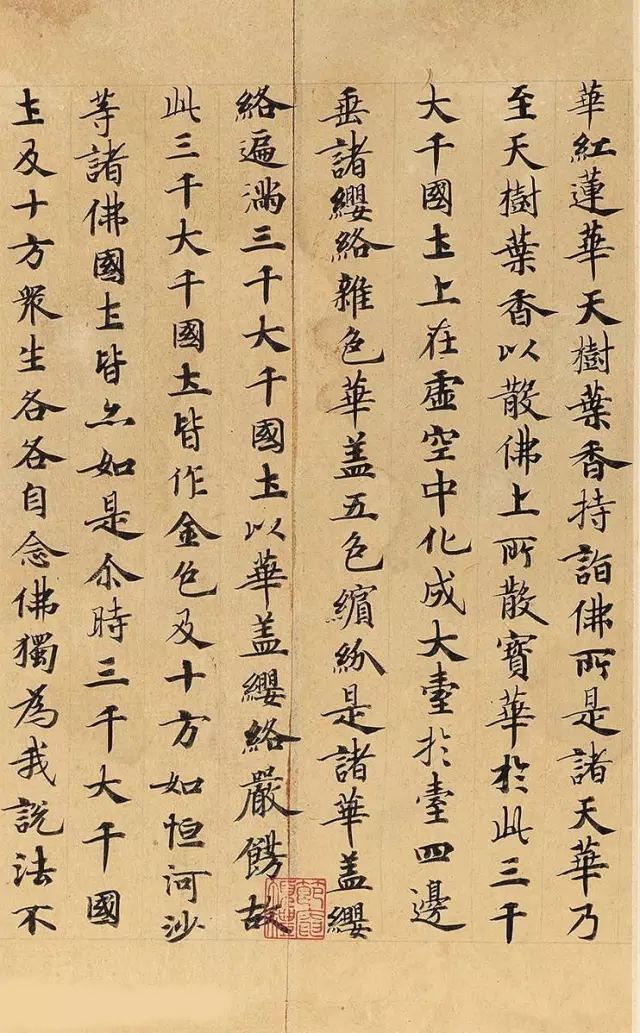 華紅蓮華天樹葉香持詣佛所是諸天華乃
至天樹葉香以散佛上所散寶華於此三千
大千國土上在虛空中化成大臺於臺四邊
垂諸纓絡雜色華盖五色繽紛是諸華盖纓
絡遍滿三千大千國土以華盖纓絡嚴餝故
此三千大千國土皆作金色及十方如恒河沙
等諸佛國土皆亦如是尒時三千大千國
土及十方眾生各各自念佛獨為我說法不